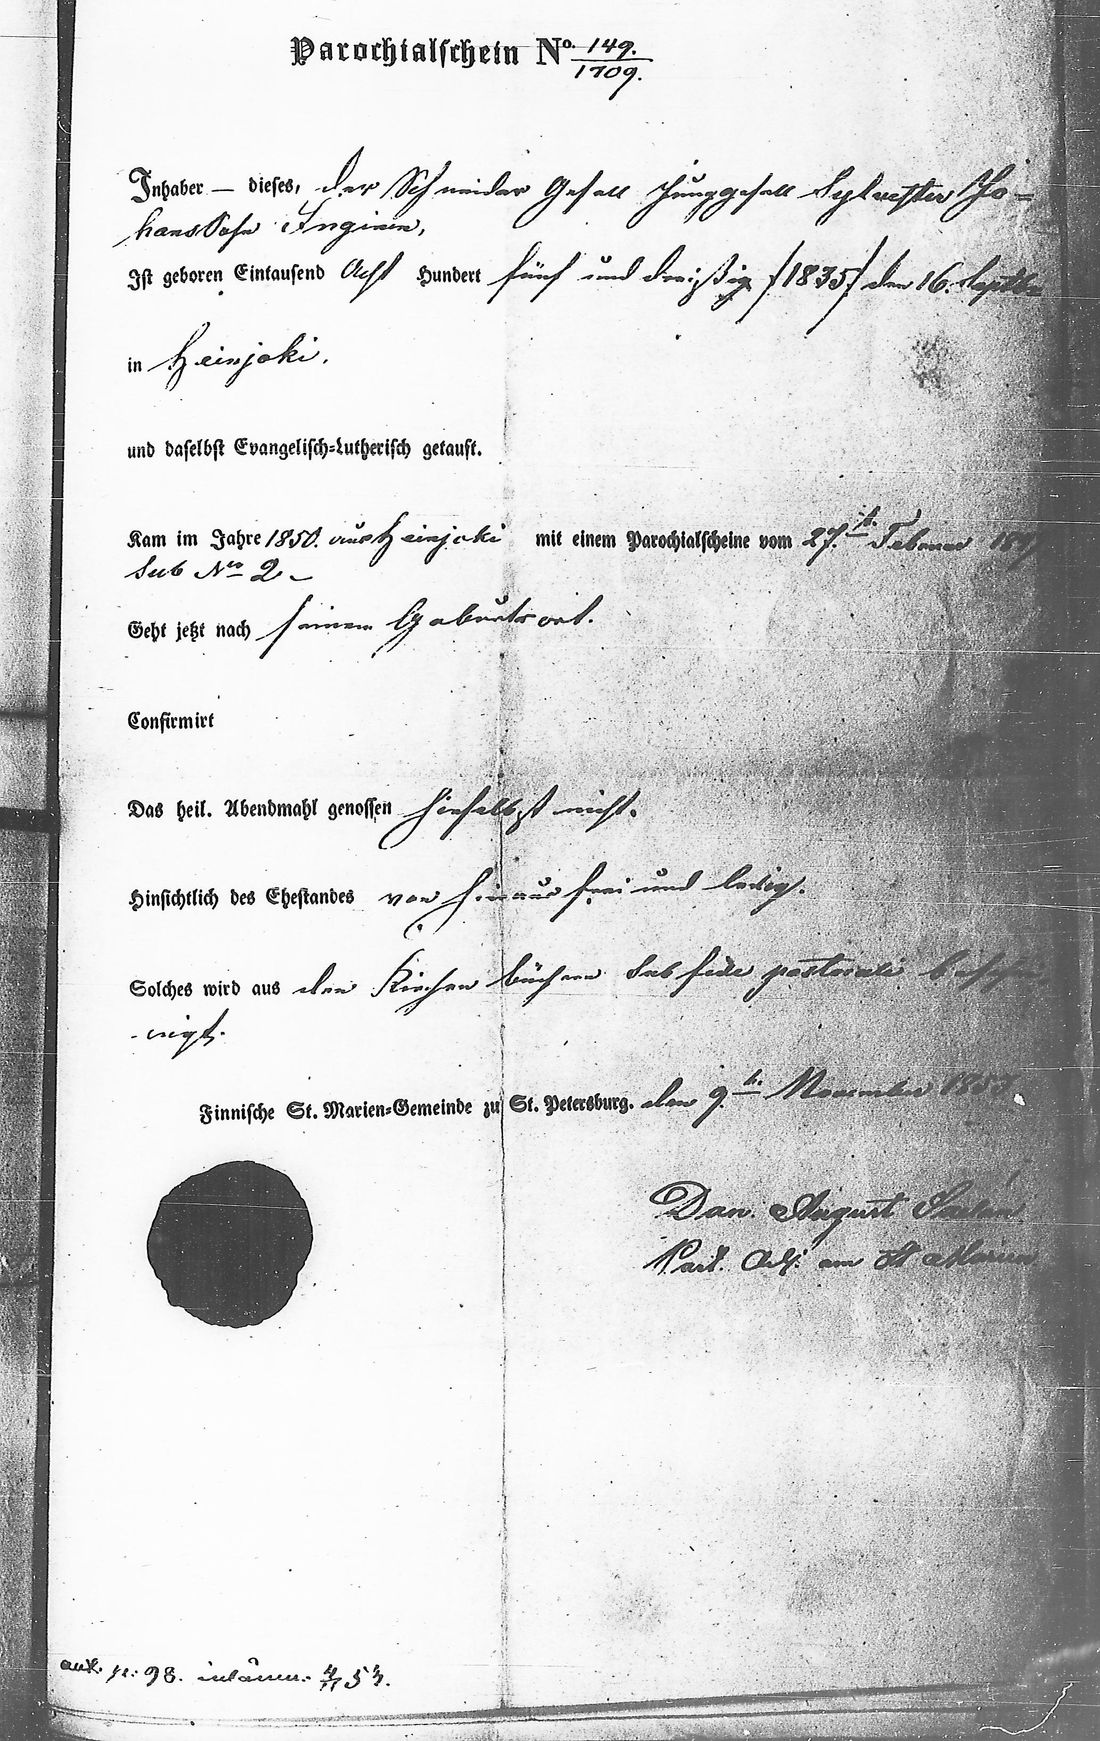 Parochialschein No. 149./1709.
Inhaber — dieses, der Schneider Gesell Junggesell Sylvester Jo=
hansSohn Inginen,
Ist geboren Eintausend Acht Hundert fünf und dreißig /1835/ den 16. Septbr
in Heinjoki.
und daselbst Evangelisch=Lutherisch getauft.
Kam im Jahre 1850. aus Heinjoki mit einem Parochialscheine vom 27.
Sub No 2 —
Geht jetzt nach seinem Geburtsort.
Confirmirt
Das heil. Abendmahl genossen hieselbst nicht.
Hinsichtlich des Ehestandes von hieraus frei und ledig.
Solches wird aus den Kirchen büchern Sub fide pastorali
-nigt.
Finnische St. Marien=Gemeinde zu St. Petersburg. den 9. November
Dan. August
Past. Adj. am St Marien
ank. 98.